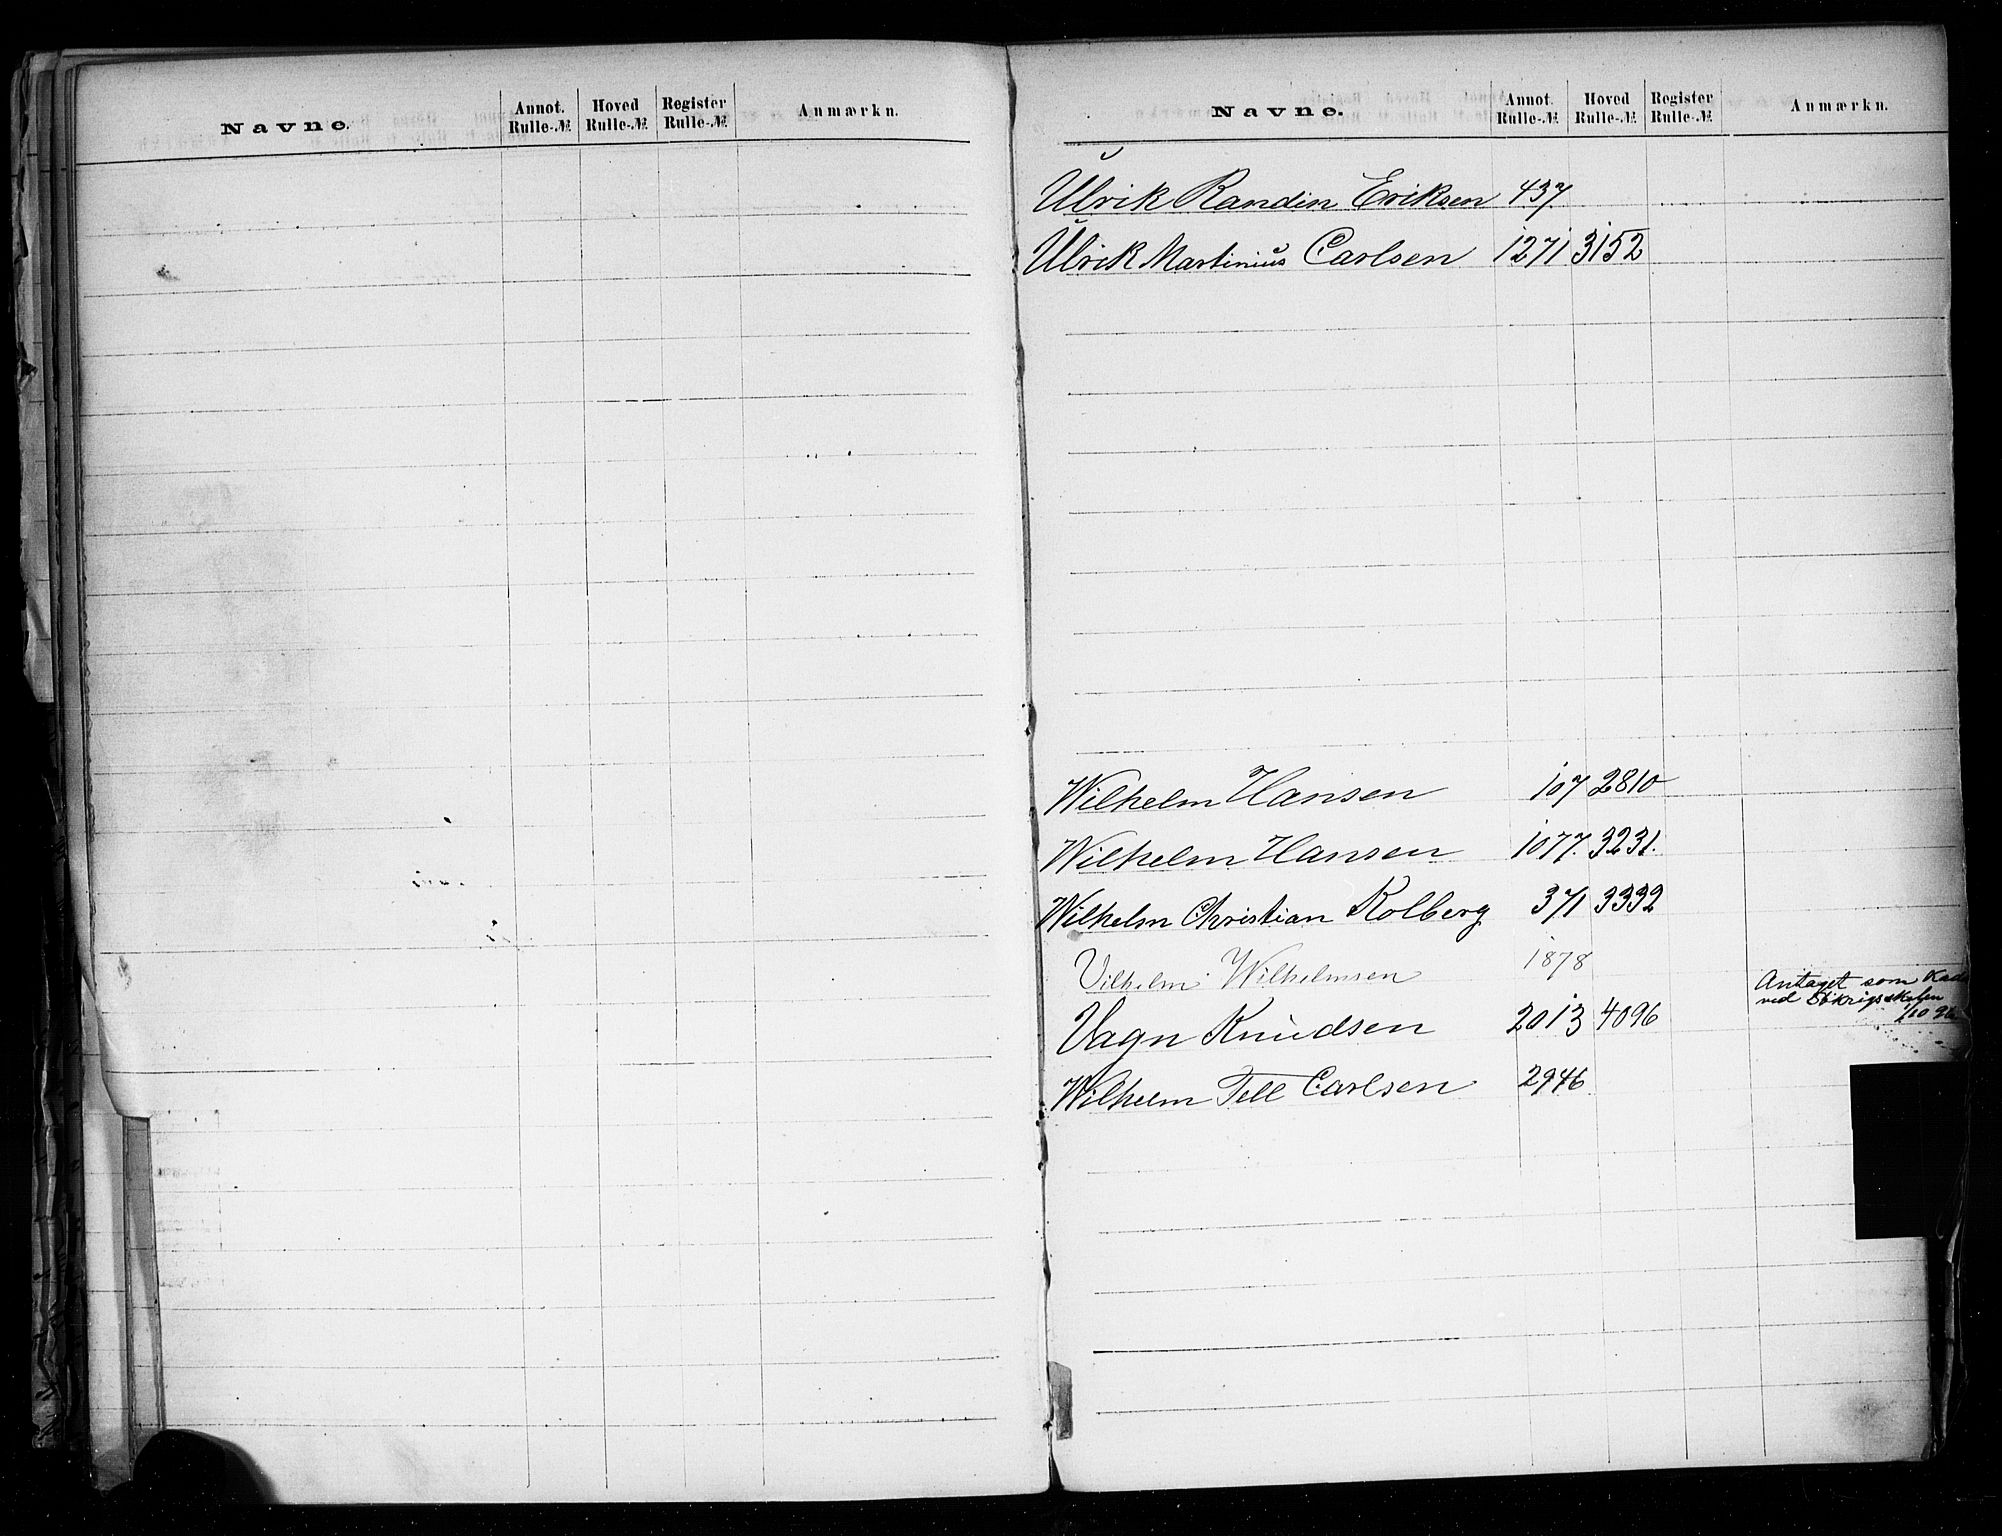 Navne. Annot. Rulle-№ Hoved Rulle-№ Register Rulle-№ Anmærkn.
Navne. Annot. Rulle-№ Hoved Rulle-№ Register Rulle-№ Anmærkn.
Ulrik Randin Eriksen 437
Ulrik Martinius Carlsen 1271 3152
Wilhelm Hansen 107 2810
Wilhelm Hansen 1077. 3231.
Wilhelm Christian Kolberg 371 3332
Vilhelm Wilhelmsen 1878
Antaget som Kad
ved Søkrigsskolen
1/10 96
Vagn Knudsen 2013 4096
Wilhelm Tell Carlsen 2946